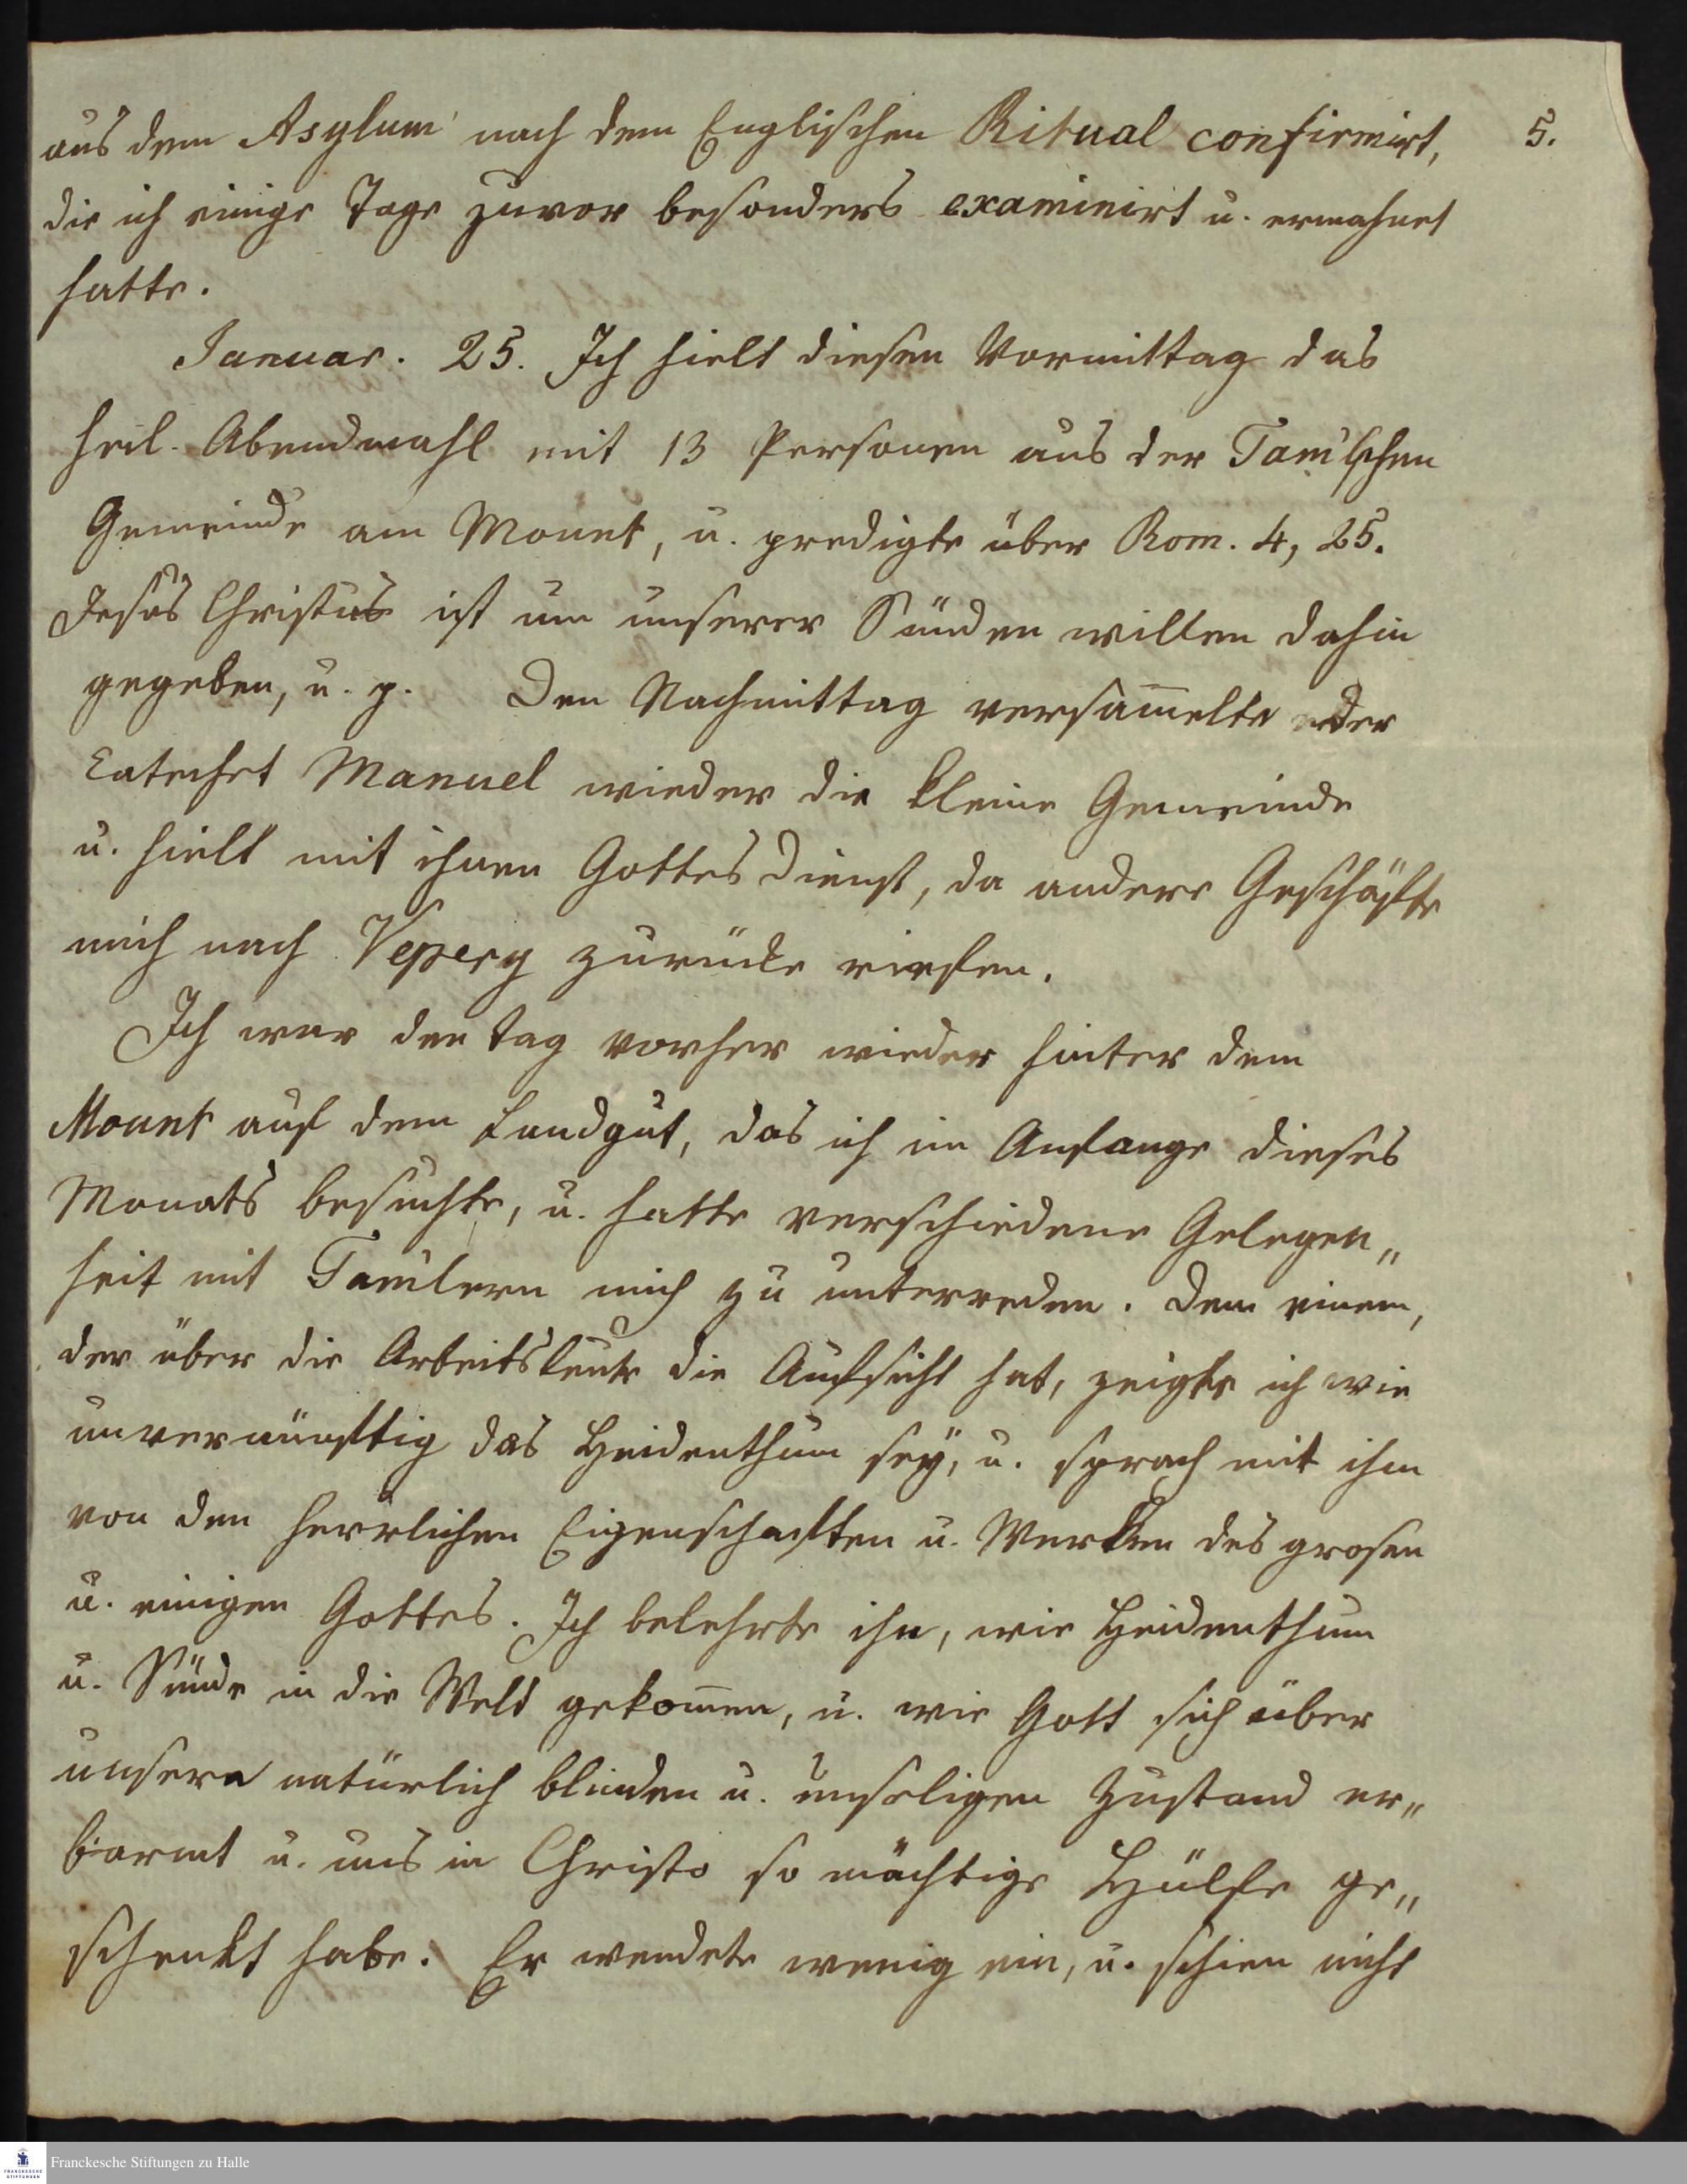 5.
aus dem Asylum nach dem Englischen Ritual confirmirt,
die ich einige Tage zuvor besonders examinirt u. ermahnet
hatte.
Januar. 25. Ich hielt diesen Vormittag das
heil. Abendmahl mit 13 Personen aus der Tamulschen
Gemeinde am Mount, u. predigte über Rom. 4, 25.
Jesus Christus ist um unserer Sünden willen dahin
gegeben, u. p. Den Nachmittag versam̅elte der
Catechet Manuel wieder die kleine Gemeinde
u. hielt mit ihnen Gottesdienst, da andere Geschäfte
mich nach Vepery zurücke riefen.
Ich war den Tag vorher wieder hinter dem
Mount auf dem Landgut, das ich im Anfange dieses
Monats besuchte, u. hatte verschiedene Gelegen„
heit mit Tamulern mich zu unterreden. Dem einem,
der über die Arbeitsleute die Aufsicht hat, zeigte ich wie
unvernünftig das Heidenthum seÿ, u. sprach mit ihm
von den herrlichen Eigenschaften u. Werken des grosen
u. einigen Gottes. Ich belehrte ihn, wie Heidenthum
u. Sünde in die Welt gekom̅en, u. wie Gott sich über
unsern natürlich blinden u. unseligen Zustand er„
barmt u. uns in Christo so mächtige Hülfe ge„
schenkt habe. Er wendete wenig ein, u. schien nicht
Franckesche Stiftungen zu Halle
FRANCKESCHE
STIFTUNGEN